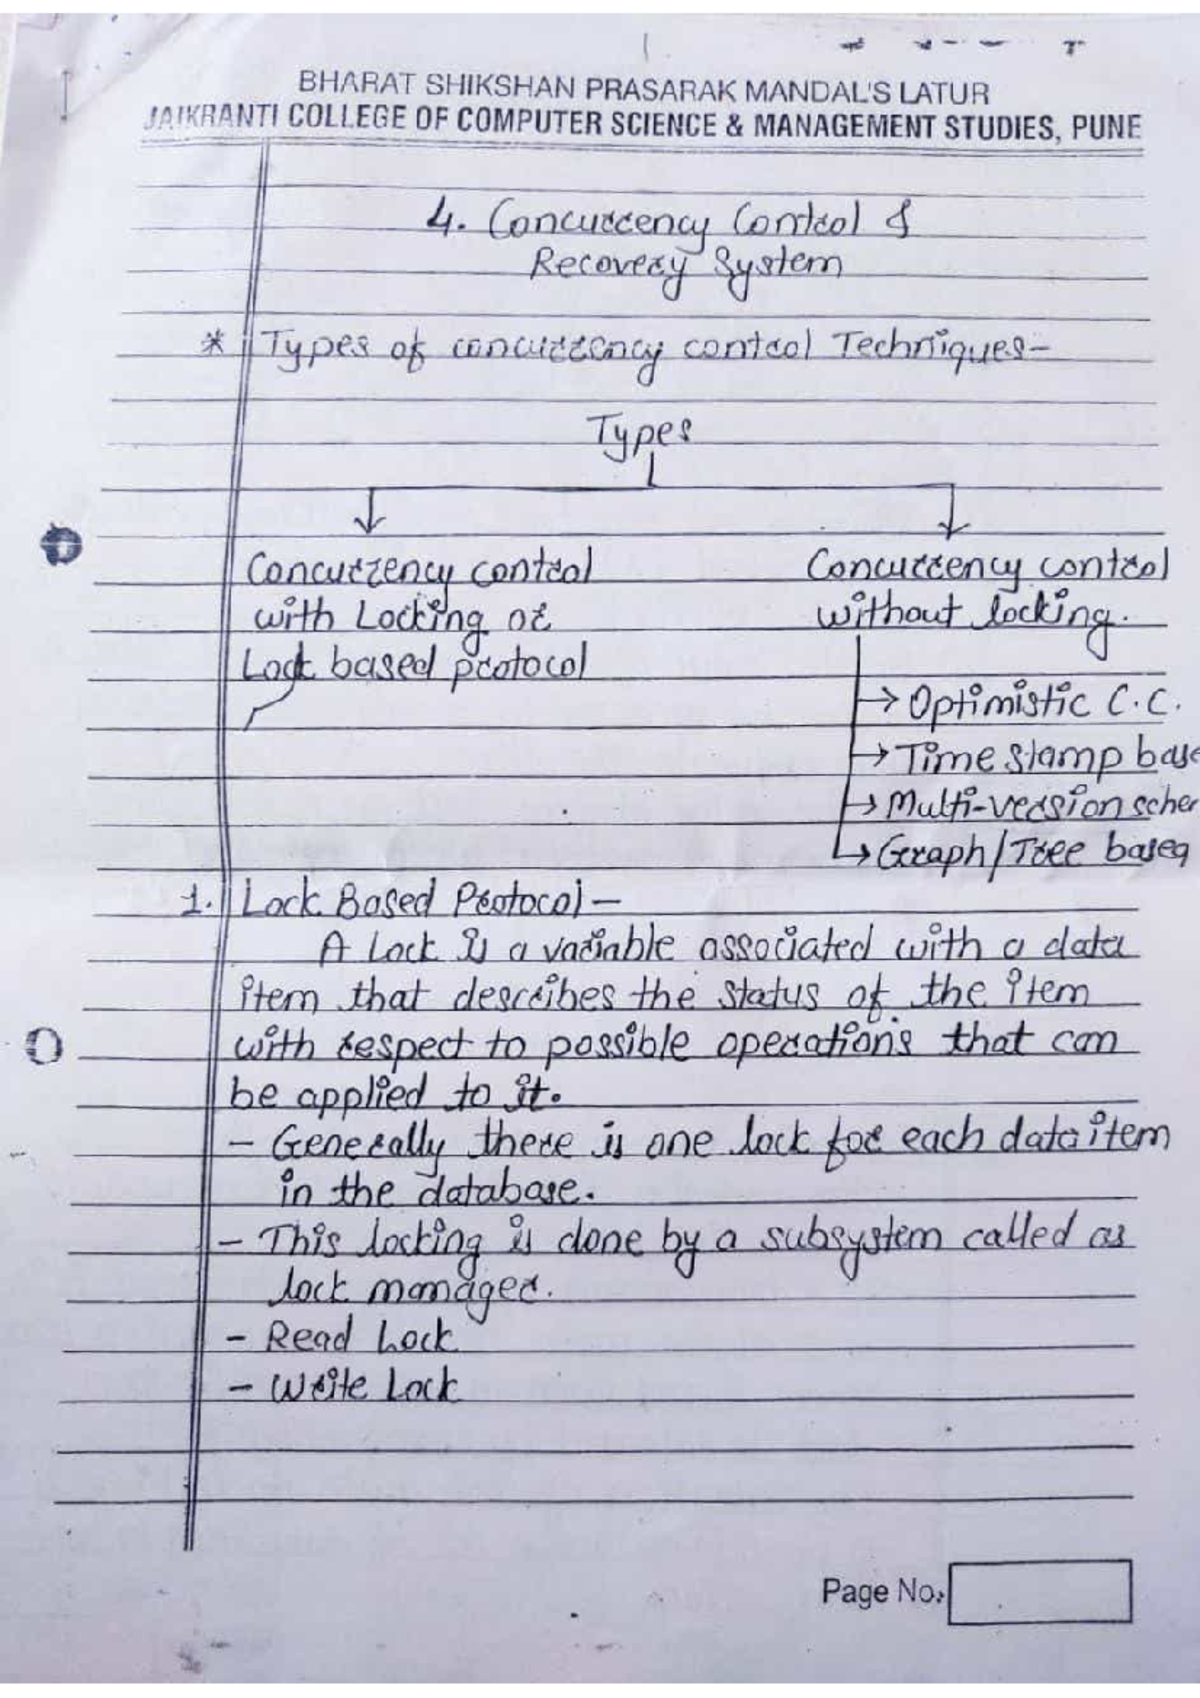 BHARAT SHIKSHAN PRASARAK MANDAL'S LATUR
JAIKRANTI COLLEGE OF COMPUTER SCIENCE & MANAGEMENT STUDIES, PUNE
4. Concurrency Control &
Recovery System
* Types of concurrency control Techniques-
Types
Concurrency control
with Locking or
Lock based protocol
Concurrency control
without locking.
→ Optimistic C.C.
→ Time stamp base
→ Multi-version scher
→ Graph/Tree based
1. Lock Based Protocol-
A Lock is a variable associated with a data
item that describes the status of the item
with respect to possible operations that can
be applied to it.
- Generally there is one lock for each data item
in the database.
- This locking is done by a subsystem called as
lock manager.
- Read Lock
- Write Lock
Page No.